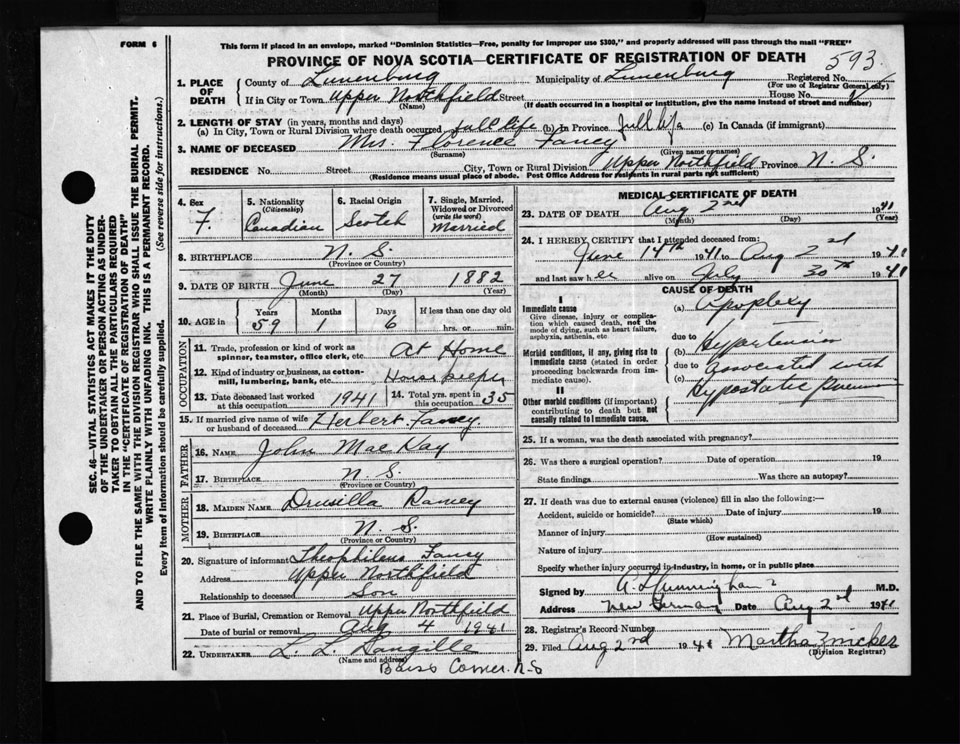 FORM 6
This form if placed in an envelope, marked "Dominion Statistics—Free, penalty for improper use $300," and properly addressed will pass through the mail "FREE"
PROVINCE OF NOVA SCOTIA—CERTIFICATE OF REGISTRATION OF DEATH
593
1. PLACE OF DEATH
County of Lunenburg Municipality of Lunenburg Registered No.
(For use of Registrar General only)
If in City or Town Upper Northfield Street House No.
(Name) (If death occurred in a hospital or institution, give the name instead of street and number)
2. LENGTH OF STAY (in years, months and days)
(a) In City, Town or Rural Division where death occurred full life (b) In Province full life (c) In Canada (if immigrant)
3. NAME OF DECEASED Mrs. Florence Fancy
(Surname) (Given name or names)
RESIDENCE No. Street City, Town or Rural Division Upper Northfield Province N. S.
(Residence means usual place of abode. Post Office Address for residents in rural parts not sufficient)
4. Sex
F.
5. Nationality (Citizenship)
Canadian
6. Racial Origin
Scotch
7. Single, Married, Widowed or Divorced (write the word)
Married
8. BIRTHPLACE N. S.
(Province or Country)
9. DATE OF BIRTH June 27 1882
(Month) (Day) (Year)
10. AGE in Years Months Days If less than one day old
59 1 6 hrs. or min.
OCCUPATION
11. Trade, profession or kind of work as spinner, teamster, office clerk, etc. At Home
12. Kind of industry or business, as cotton-mill, lumbering, bank, etc. House keeper
13. Date deceased last worked at this occupation 1941
14. Total yrs. spent in this occupation 35
15. If married give name of wife or husband of deceased Herbert Fancy.
FATHER
16. NAME John MacKay
17. BIRTHPLACE N. S.
(Province or Country)
MOTHER
18. MAIDEN NAME Drusilla Ramey
19. BIRTHPLACE N. S.
(Province or Country)
20. Signature of informant Theophilus Fancy
Address Upper Northfield
Relationship to deceased Son
21. Place of Burial, Cremation or Removal Upper Northfield
Date of burial or removal Aug 4 1941
22. UNDERTAKER L. L. Langille
(Name and address)
Corner. N-S
MEDICAL CERTIFICATE OF DEATH
23. DATE OF DEATH Aug 2nd 1941
(Month) (Day) (Year)
24. I HEREBY CERTIFY that I attended deceased from:
June 14th 1941 to Aug 2nd 1941
and last saw her alive on July 30th 1941
CAUSE OF DEATH
I
Immediate cause
Give disease, injury or complication which caused death, not the mode of dying, such as heart failure, asphyxia, asthenia, etc
(a) Apoplexy
due to
Morbid conditions, if any, giving rise to immediate cause (stated in order proceeding backwards from immediate cause).
(b) Hypertension
due to
(c) Associated with
Hypostatic
II
Other morbid conditions (if important) contributing to death but not causally related to immediate cause.
25. If a woman, was the death associated with pregnancy?
26. Was there a surgical operation? Date of operation 19
State findings Was there an autopsy?
27. If death was due to external causes (violence) fill in also the following:—
Accident, suicide or homicide? Date of injury 19
(State which)
Manner of injury
(How sustained)
Nature of injury
Specify whether injury occurred in industry, in home, or in public place
Signed by M.D.
Address New Germany Date Aug 2nd 1941
28. Registrar's Record Number
29. Filed Aug 2nd 1941 Martha Zwicker
(Division Registrar)
SEC. 46—VITAL STATISTICS ACT MAKES IT THE DUTY
OF THE UNDERTAKER OR PERSON ACTING AS UNDER-
TAKER TO OBTAIN ALL THE PARTICULARS REQUIRED
IN THE "CERTIFICATE OF REGISTRATION OF DEATH"
AND TO FILE THE SAME WITH THE DIVISION REGISTRAR WHO SHALL ISSUE THE BURIAL PERMIT.
WRITE PLAINLY WITH UNFADING INK. THIS IS A PERMANENT RECORD.
Every item of information should be carefully supplied. (See reverse side for instructions.)